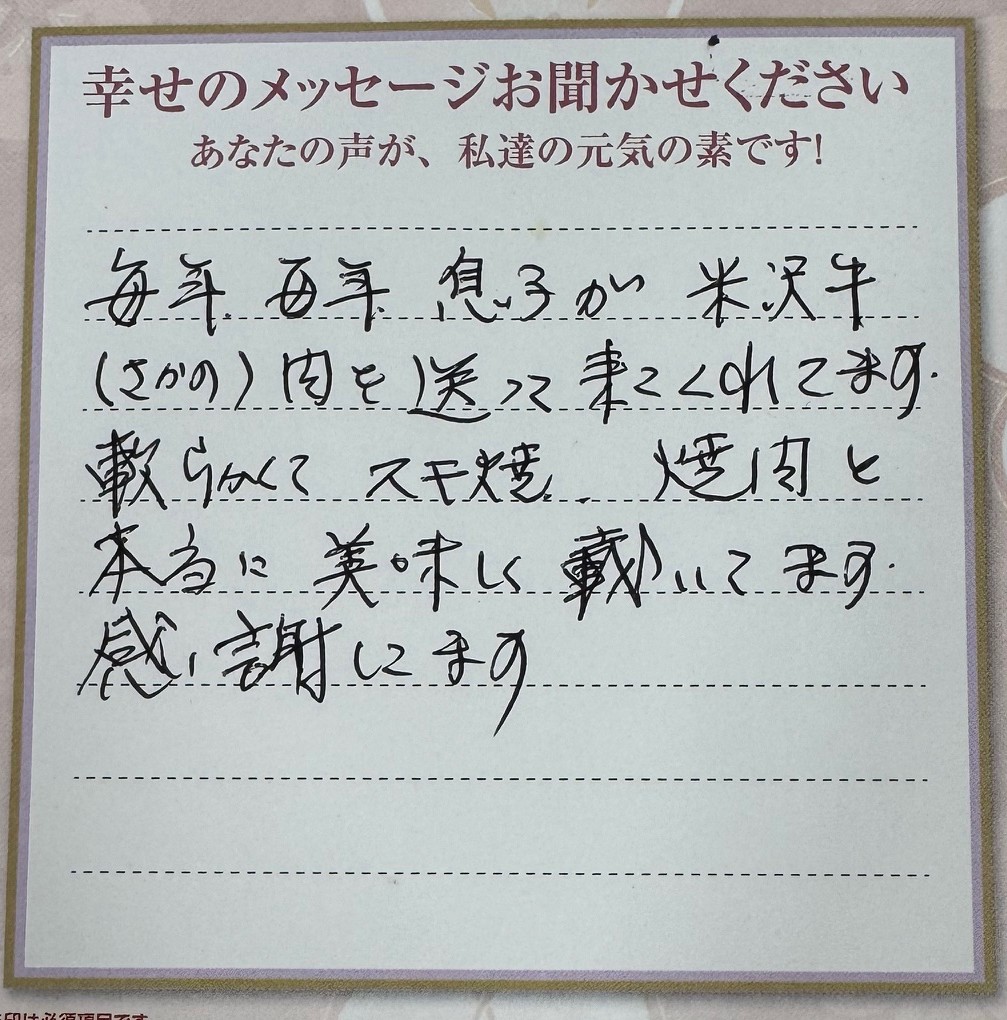 幸せのメッセージお聞かせください
あなたの声が、私達の元気の素です!
毎年 毎年 息子が 米沢牛
(さかの)肉を送って来てくれてます.
軟らかくて スキ焼. 焼肉と
本当に 美味しく 載いてます.
感謝してます
印は必須項目です